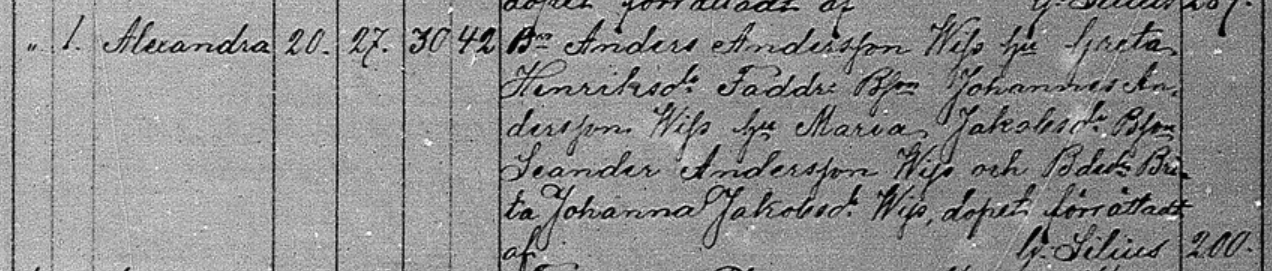 dopet förrättadt af G. Silius 207.
" 1. Alexandra 20. 27. 30 42 Bn Anders Andersson Wiss hu Greta
Henriksdr. Faddr: Bson Johannes An-
dersson Wiss hu Maria Jakobsdr. Bson
Leander Andersson Wiss och Bdotr Bri-
ta Johanna Jakobsdr. Wiss, dopet förrättadt
af G. Silius 200.